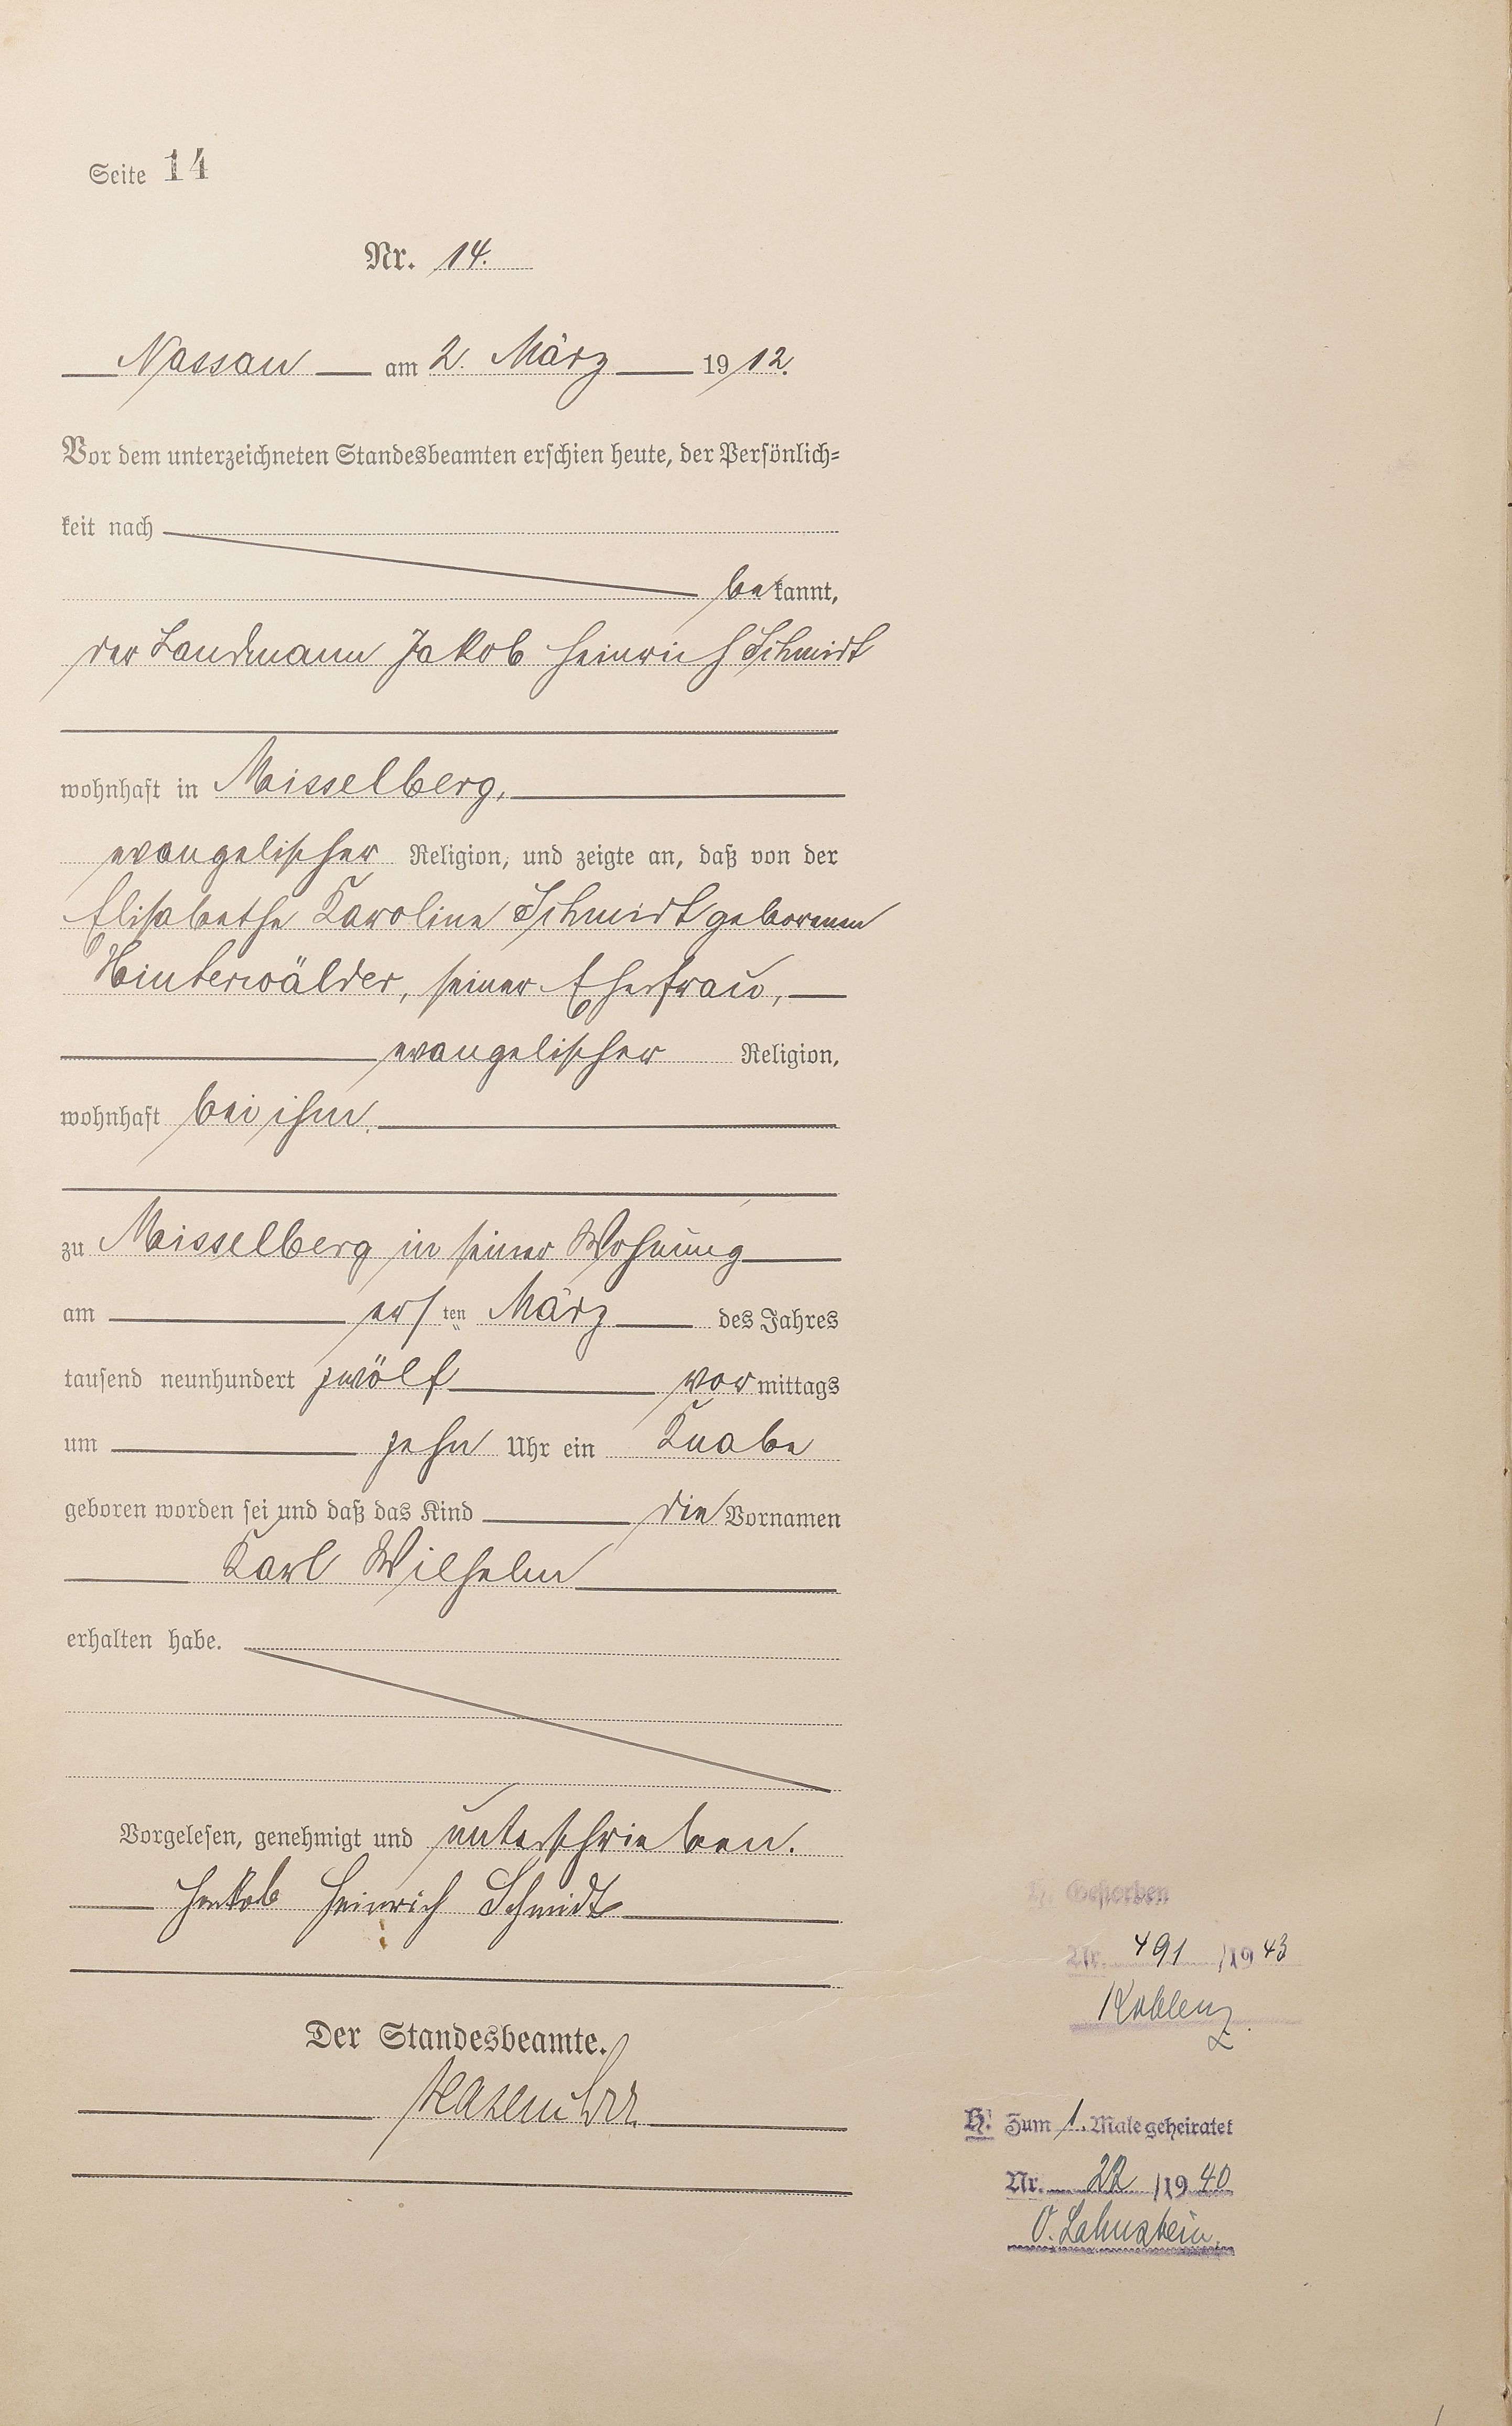 Seite 14
Nr. 14.
Nassau am 2. März 1912.
Vor dem unterzeichneten Standesbeamten erschien heute, der Persönlich-
keit nach
bekannt,
der Landmann Jakob Heinrich Schmidt
wohnhaft in Misselberg,
evangelischer Religion, und zeigte an, daß von der
Elisabethe Karoline Schmidt geborenen
Hinterwälder, seiner Ehefrau,
evangelischer Religion,
wohnhaft bei ihm
zu Misselberg in seiner Wohnung
am ersten März des Jahres
tausend neunhundert zwölf vormittags
um zehn Uhr ein Knabe
geboren worden sei und daß das Kind die Vornamen
Karl Wilhelm
erhalten habe.
Vorgelesen, genehmigt und unterschrieben.
Jakob Heinrich Schmidt
Der Standesbeamte.
Gestorben
Nr. 491 /1943
Koblenz
H. Zum 1. Male geheiratet
Nr. 22 /1940
O. Lahnstein.